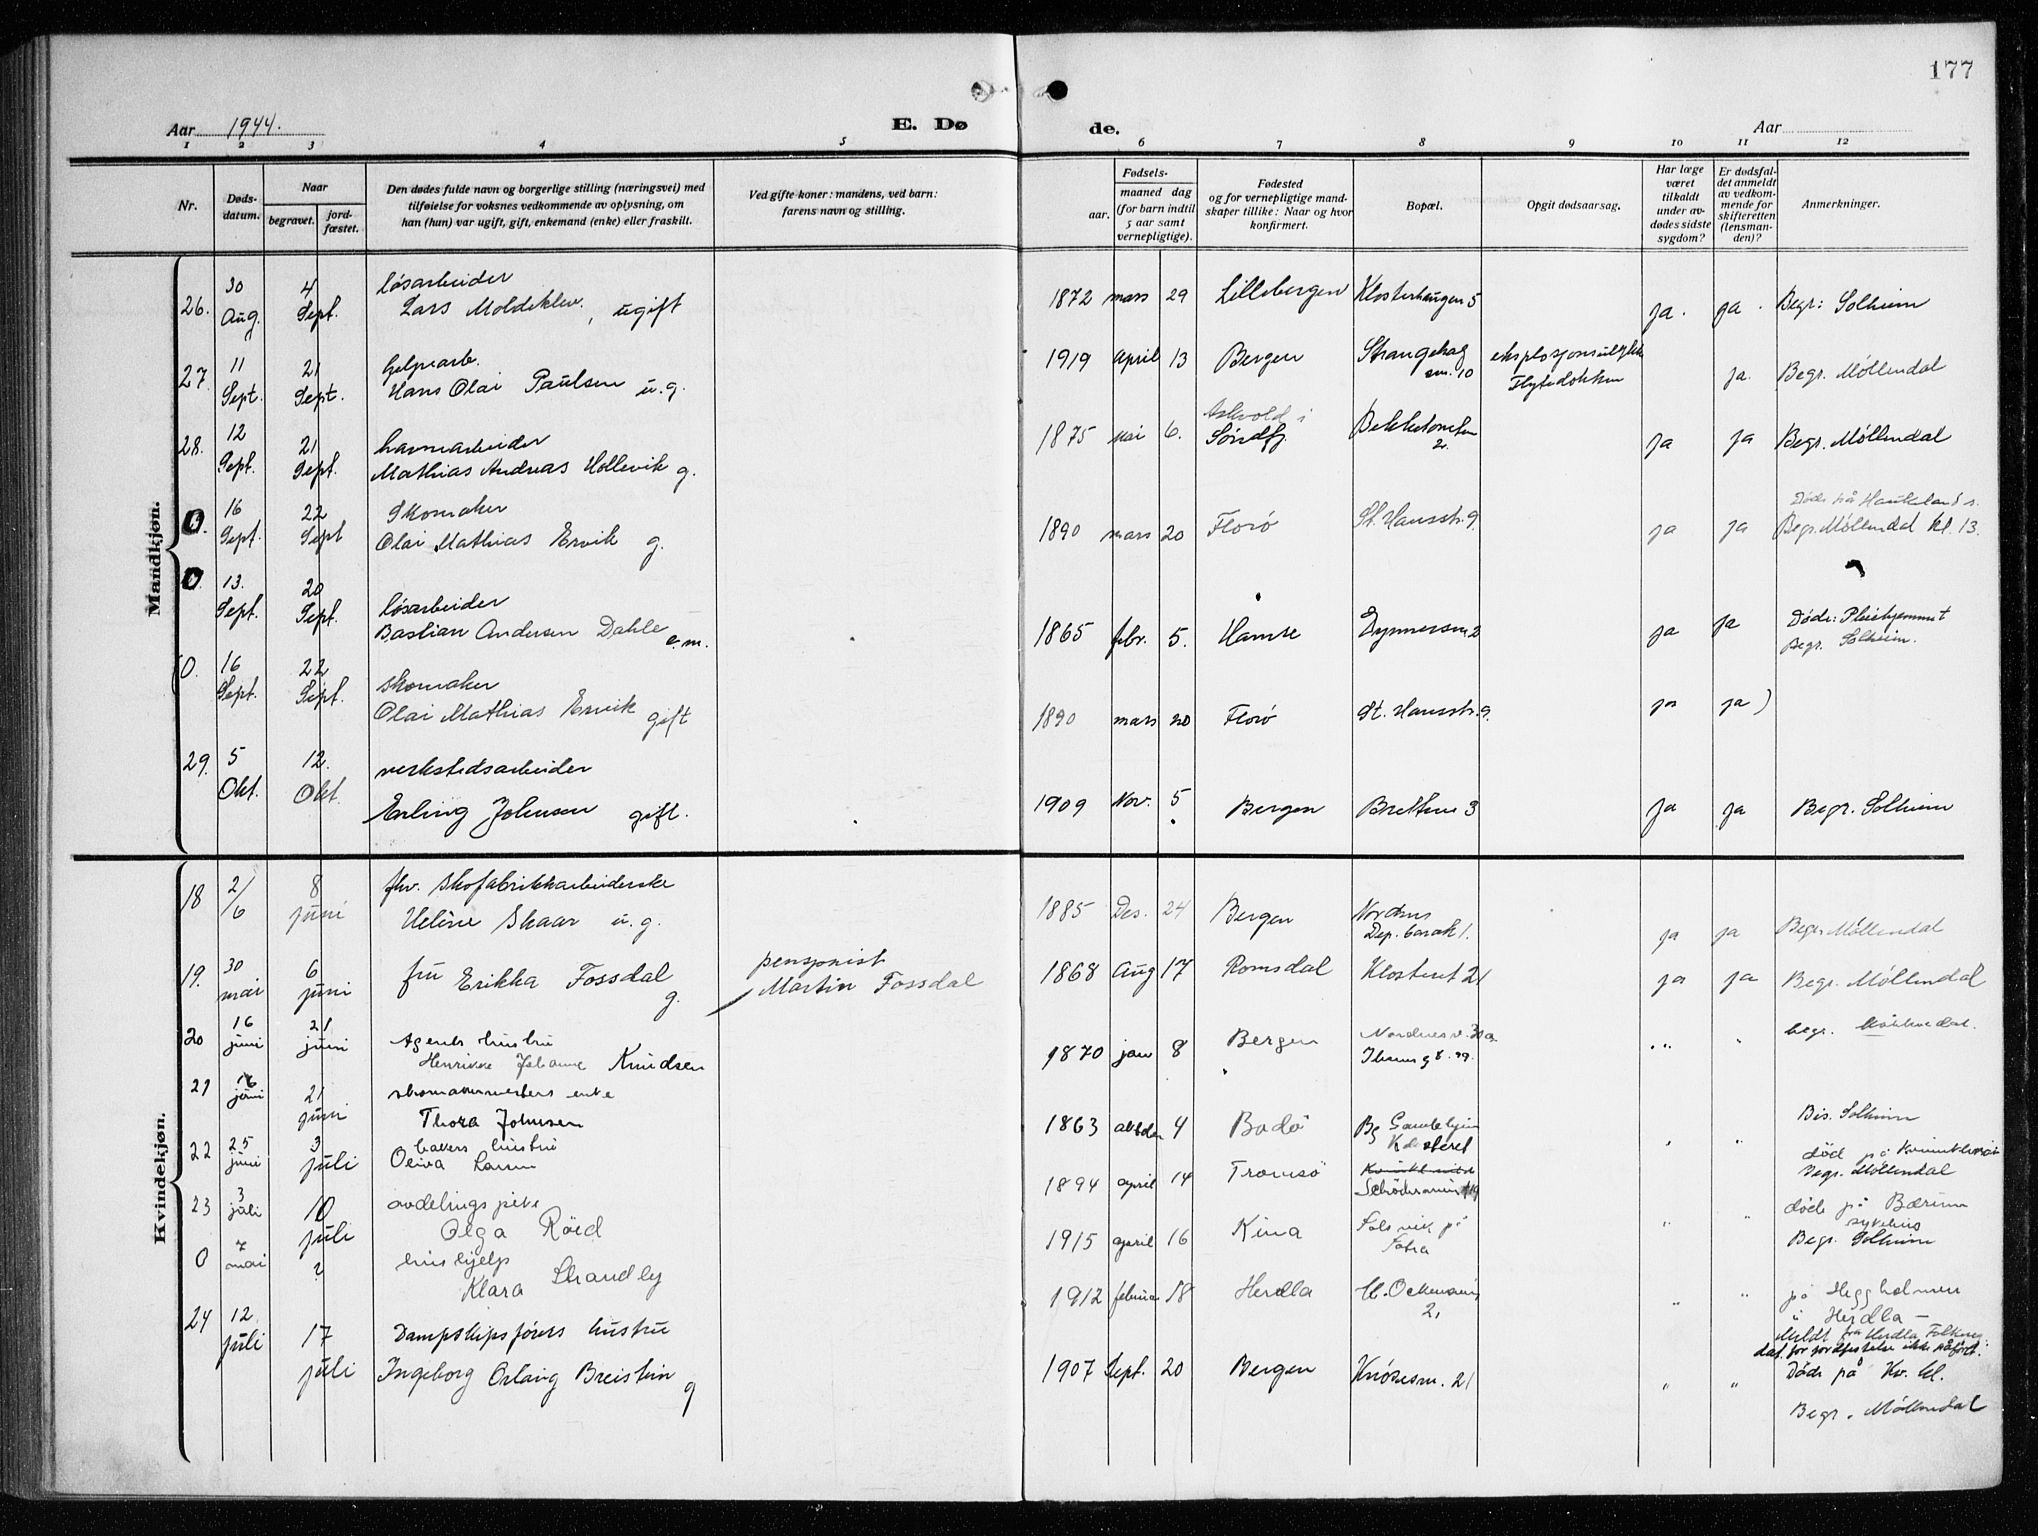 177
Aar 1944. E. Dø de. Aar
1 2 3 4 5 6 7 8 9 10 11 12
Nr. Døds-datum. Naar begravet. jord-fæstet. Den dødes fulde navn og borgerlige stilling (næringsvei) med tilføielse for voksnes vedkommende av oplysning, om han (hun) var ugift, gift, enkemand (enke) eller fraskilt. Ved gifte koner: mandens, ved barn: farens navn og stilling. Fødsels- aar. maaned dag (for barn indtil 5 aar samt vernepligtige). Fødested og for vernepligtige mand-skaper tillike: Naar og hvor konfirmert. Bopæl. Opgit dødsaarsag. Har læge været tilkaldt under av-dødes sidste sygdom? Er dødsfal-det anmeldt av vedkom-mende for skifteretten (lensman-den)? Anmerkninger.
Mandkjøn.
26. 30 Aug. 4 Sept. løsarbeider
Lars Moldeklev, ugift 1872 mars 29 Lillebergen Klosterhaugen 5 ja. ja. Begr: Solheim
27. 11 Sept. 21 Sept. hjelpearb.
Hans Olai Paulsen u.g. 1919 april 13 Bergen Strangehag sm. 10 eksplosjonsulykke Flytedokken ja. Begr. Møllendal
28. 12 Sept. 21 Sept. havnearbeider
Mathias Andreas Hollevik g. 1875 mai 6. Askvold i Søndfj. 2. ja ja Begr. Møllendal
0. 16 Sept. 22 Sept Skomaker
Olai Mathias Ervik g. 1890 mars 20 Florø St. Hansstr. 9 ja ja Døde på Haukeland s.
Begr. Møllendal kl. 13.
0. 13. Sept. 20 Sept. løsarbeider
Bastian Andersen Dahle e.m. 1865 febr. 5. Hamre 2 ja ja Døde: Pleiehjemmet
Begr. Solheim.
(0. 16 Sept. 22 Sept. skomaker
Olai Mathias Ervik gift 1890 mars 20 Florø St. Hansstr. 9. ja ja)
29. 5 Okt. 12. Okt. verkstedsarbeider
Erling Johnsen gift. 1909 Nov. 5 Bergen 3 ja ja Begr. Solheim
Kvindekjøn.
18 2/6 8 juni fhv. skofabrikkarbeiderske
Helène Skaar u.g. 1885 Des. 24 Bergen Nordnes Dep. barak 1. ja ja Begr. Møllendal
19. 30 mai 6 juni fru Erikka Fossdal g. pensjonist
Martin Fossdal 1868 Aug 17 Romsdal Klosteret 21 ja ja Begr. Møllendal
20 16 juni 21 juni Agents hustru
Henrikke Johanne Knudsen 1870 jan 8 Bergen Nordnesv. 30a
Ibsensg 8. 29. " " begr. Møllendal.
21 16 juni 21 juni skomakermesters enke
Thora Johnsen 1863 oktober 4 Bodö Bg Gamlehjem Klosteret " " Bis. Solheim
22 25 juni 3 juli bakers hustru
Oliva Larsen 1894 april 14 Tromsö " " død på Kvinneklinikken
Begr. Møllendal
23 3 juli 10 juli avdelingspike
Olga Röed 1915 april 16 Kina på " " døde på Bærum sykehus
Begr. Solheim
0 7 mai ? hushjelp
Klara Strandby 1912 februar 18 Herdla 2, " " på Heggholmen i Herdla –
Meldt fra Herdla Folkereg.
dat. for jordfestelse ikke påført.
24 12 juli 17 juli Dampskipsførers hustru
Ingeborg Oslaug Breistein g 1907 Sept. 20 Bergen Knösesm. 21 " " Døde på Kv. kl.
Begr. Møllendal